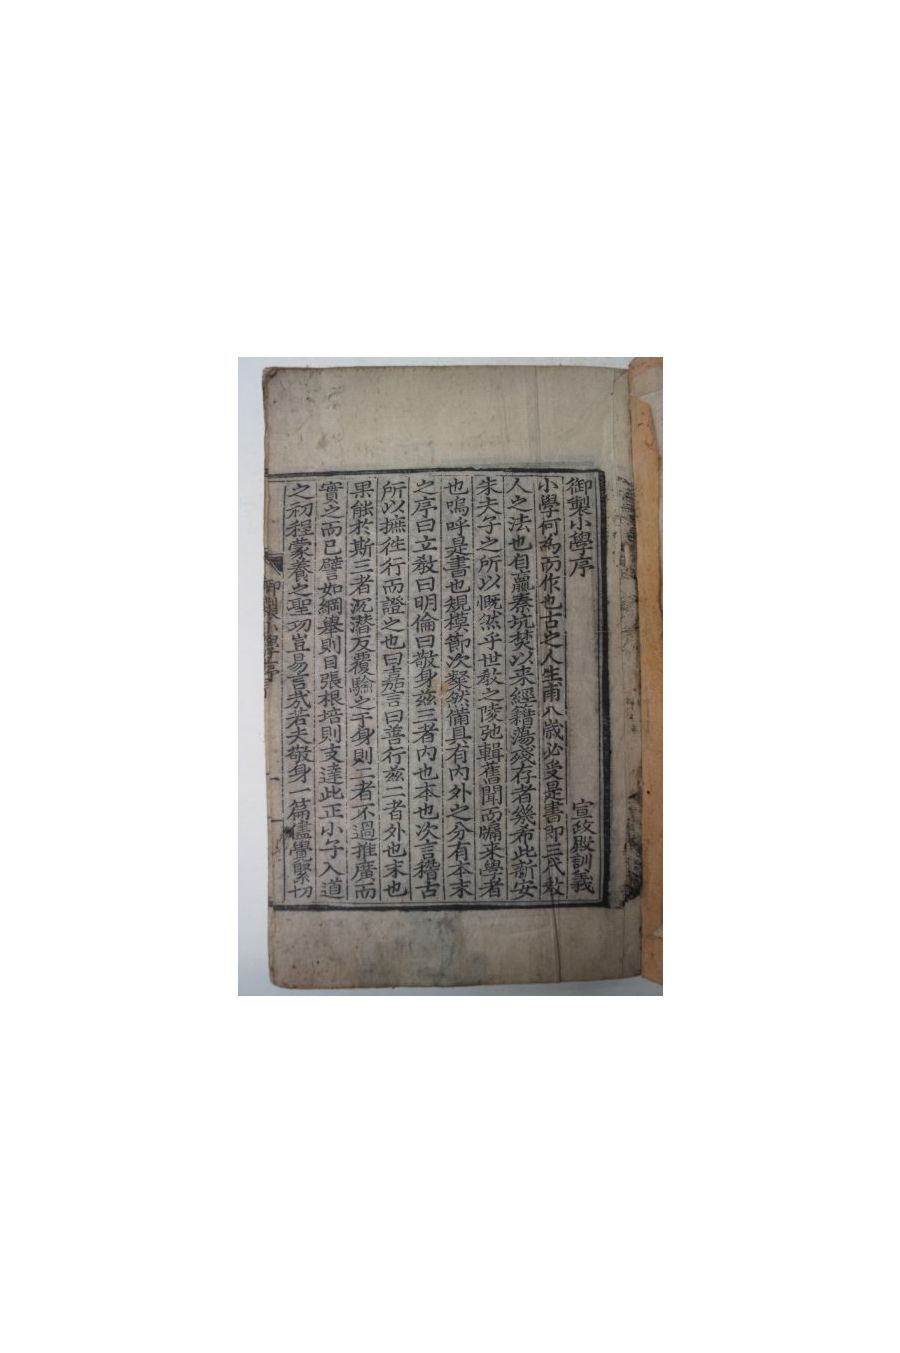 御製小學序 宣政殿訓義
小學何為而作也古之人生甫八歲必受是書即三代敎
人之法也自嬴秦坑焚以来經籍蕩殘存者幾希此新安
朱夫子之所以慨然乎世敎之陵弛輯舊聞而牖来學者
也嗚呼是書也規模節次粲然備具有内外之分有本末
之序曰立敎曰明倫曰敬身兹三者内也本也次言稽古
所以摭徃行而證之也曰嘉言曰善行兹二者外也末也
果能於斯三者沉潛反覆驗之于身則二者不過推廣而
實之而已譬如綱舉則目張根培則支達此正小子入道
之初程蒙養之聖功豈易言哉若夫敬身一篇儘覺緊切
御製小學序